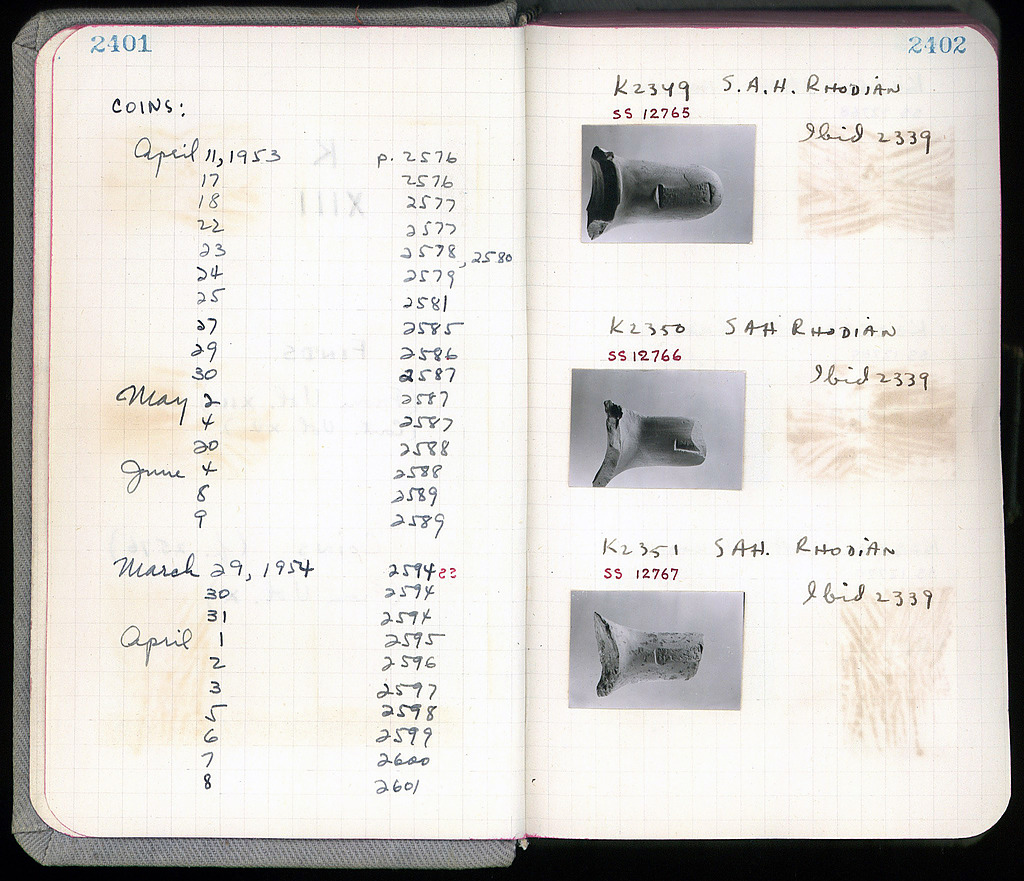 2401
COINS:
April 11, 1953 p. 2576
17 2576
18 2577
22 2577
23 2578, 2580
24 2579
25 2581
27 2585
29 2586
30 2587
May 2 2587
4 2587
20 2588
June 4 2588
8 2589
9 2589
March 29, 1954 2594
30 2594
31 2594
April 1 2595
2 2596
3 2597
5 2598
6 2599
7 2600
8 2601
2402
K2349 S.A.H. RHODIAN
SS 12765
Ibid 2339
K2350 SAH RHODIAN
SS 12766
Ibid 2339
K2351 SAH. RHODIAN
SS 12767
Ibid 2339